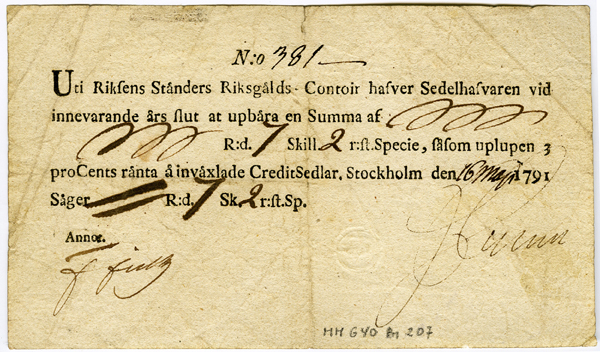 N:o 381
Uti Riksens Ständers Riksgålds-Contoir hafver Sedelhafvaren vid
innevarande års slut at upbära en Summa af
R:d. 7 Skill. 2 r:st. Specie, såsom uplupen 3
proCents rånta å invåxlade CreditSedlar. Stockholm den 16 Maji 1791
Såger R:d. 7 Sk. 2 r:st. Sp.
Annot.
MH 640 Bn 207